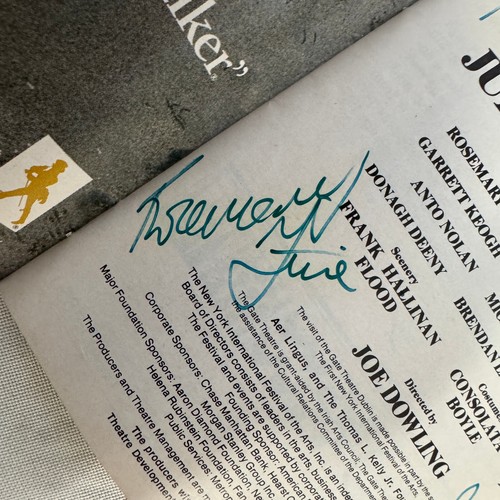 alker."
JU
ROSEMAR
GARRETT KEOGH
ANTO NOLAN
DONAGH DEENY
Scenery
FRANK HALLINAN
FLOOD
BRENDA
Costum
CONSOLAT
BOYLE
Directed by
JOE DOWLING
Rosemary
Fine
The visit of the Gate Theatre Dublin is made possible in part by
The First New York International Festival of the Arts.
The Gate Theatre is grant-aided by the Irish Arts Council. The Gate
the assistance of the Cultural Relations Committee of the Depa
Aer Lingus, and The Thomas Kelly Jr.
The New York International Festival of the Arts, Inc. is an in
Board of Directors consists of leaders in the arts, business
The Festival and events are supported by corpor
Founding Sponsor: American
Corporate Sponsors: Chase Manhattan Bank, Hearst
Morgan Stanley Group Inc.
Major Foundation Sponsors: Aaron Diamond Foundation,
Helena Rubinstein Foundation,
Public Services: Metro
The Producers and Theatre Management are
The producers
Theatre Developmen